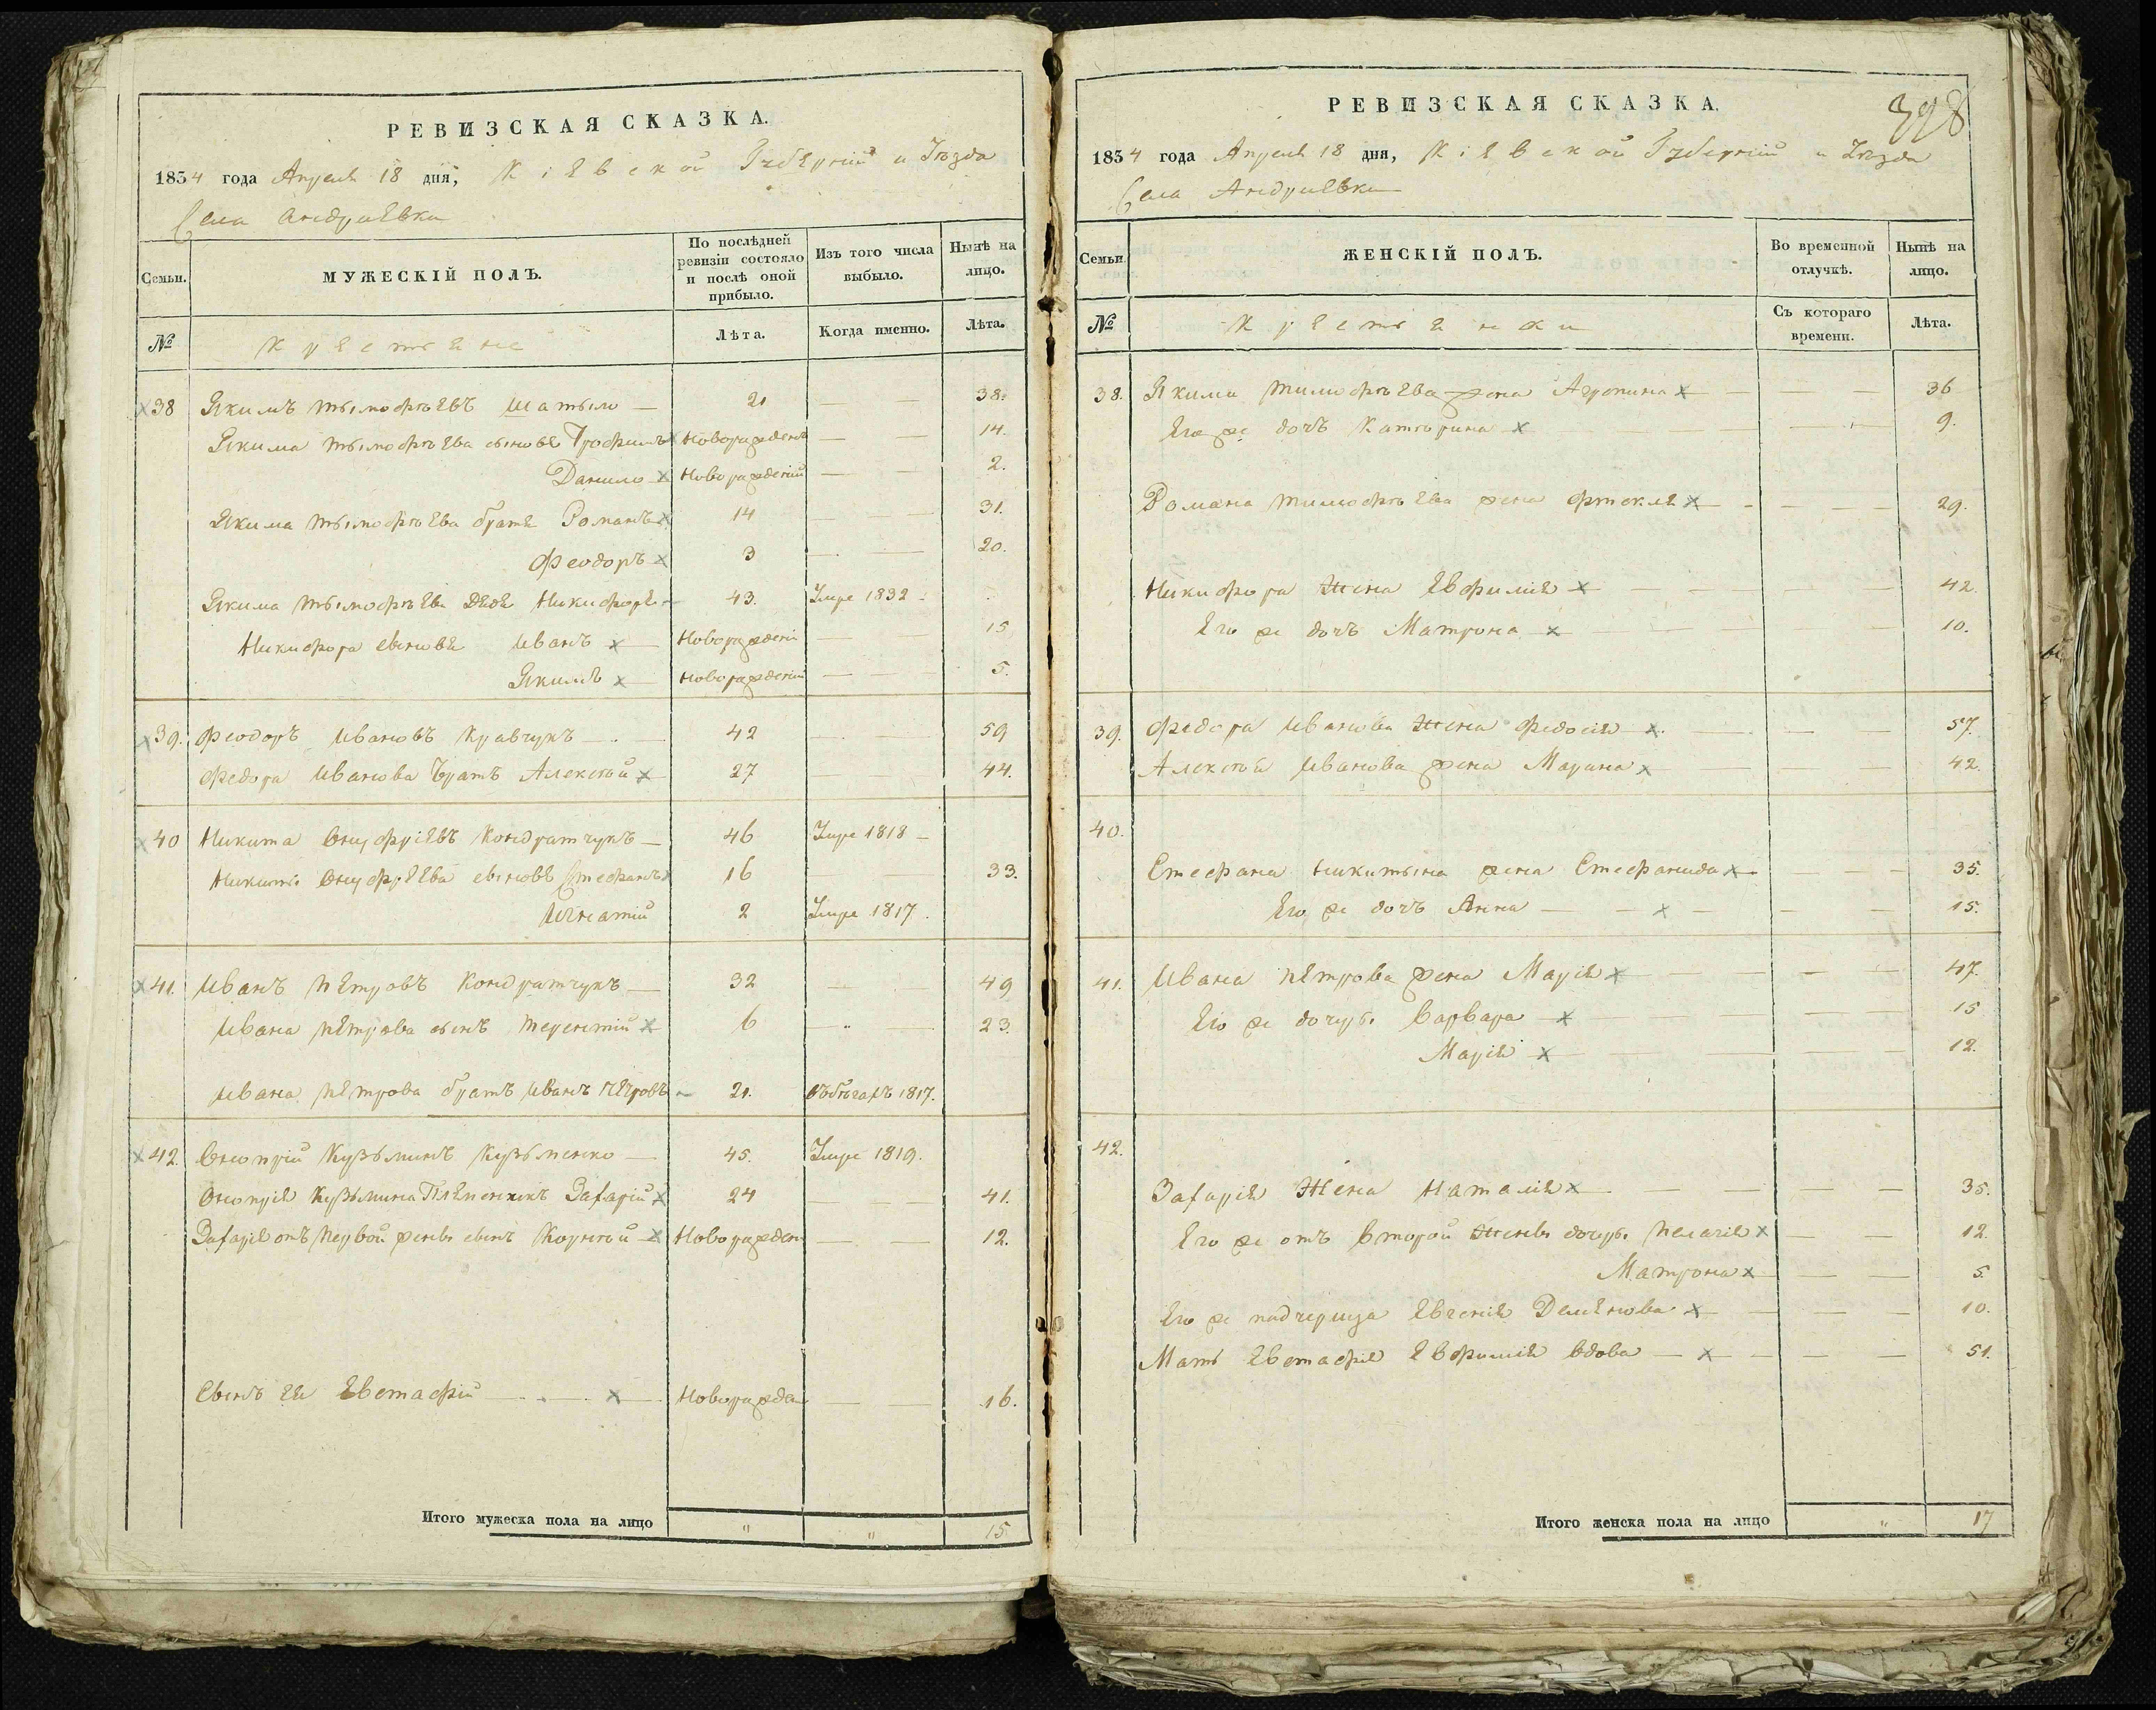 РЕВИЗСКАЯ СКАЗКА.
1834 года Апреля 18 дня, Кіевской Губерніи и Уѣзда
Села Андриевки
Семьи.
МУЖЕСКІЙ ПОЛЪ.
По послѣдней ревизіи состояло и послѣ оной прибыло.
Изъ того числа выбыло.
Нынѣ на лицо.
№
Крестяне
Лѣта.
Когда именно.
Лѣта.
38 Якимъ Тымофѣевъ 21 — — 38.
Якима Тымофѣева сыновя Трофимъ Новорожденъ — — 14.
Данило Новорожденій — — 2.
Якима Тымофѣева братя Романъ 14 — — 31.
Феодоръ 3 — — 20.
Якима Тымофѣева дядя Никифоръ 43. Умре 1832
Никифора сыновя Иванъ Новорожденій — — 15
Якимъ Новорожденій — — 5.
39. Феодоръ Ивановъ Кравчукъ 42 — — 59
Федора Иванова братъ Алексѣй 27 — — 44.
40 Никита Онуфріевъ Кондратчукъ — 46 Умре 1818 —
Никиты Онуфріева сыновя Стефанъ 16 — — 33.
Игнатій 2 Умре 1817.
41. Иванъ Петровъ Кондратчукъ — 32 — — 49
Ивана Петрова сынъ Терентій 6 — — 23.
Ивана Петрова братъ Иванъ Петровъ 21. 1817.
42. Онопрій Кузьминъ Кузьменко — 45. Умре 1819.
Онопрія Кузьмина Племенникъ Захарій 24 — — 41.
Захарія отъ Первой жены сынъ Корнѣй Новорожден — — 12.
Сынъ ея Евстафій Новорожден — — 16.
Итого мужеска пола на лицо " " 15
398
РЕВИЗСКАЯ СКАЗКА.
1834 года Апреля 18 дня, Кіевской Губерніи и Уѣзда
Села Андриевки
Семьи
ЖЕНСКІЙ ПОЛЪ.
Во временной отлучкѣ.
Нынѣ на лицо.
№
Крестянки
Съ котораго времени.
Лѣта.
38. Якима Тимофѣева жена Агрепина — — 36
Его же дочь Катерина 9.
Романа Тимофѣева жена Фтекля — — 29.
Никифора Жена Евфимія — — 42
Его же дочъ Матрона — — 10.
39. Федора Иванова Жена Федосія — — 57.
Алексѣя Иванова жена Марина — — 42.
40.
Стефана Никитына жена Стефанида — — 35.
Его же дочъ Анна — — 15.
41. Ивана Петрова жена Марія — — 47.
Его же дочеры Варвара — — 15
Марія — — 12.
42.
Захарія Жена Наталія — — 35.
Его же отъ второй Жены дочеры Пелагія — — 12.
Матрона — — 5.
Его же падчерица Евгенія Демянова — — 10.
Мать Евстафія Евфимія вдова — — 51.
Итого женска пола на лицо " 17